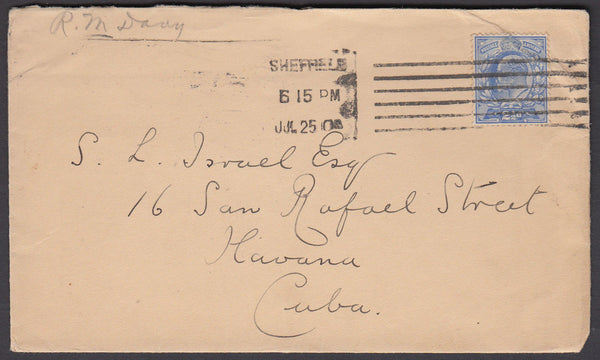 R. M Davy
SHEFFIELD
6 15 PM
JUL 25
S. L. Israel Esq
16 San Rafael Street
Havana
Cuba.